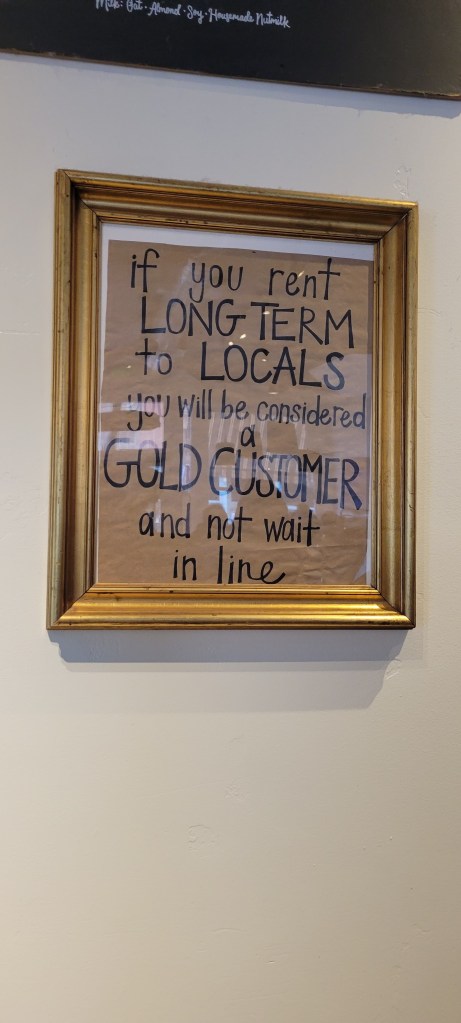 Milk: Oat · Almond · Soy · Housemade Nutmilk
if you rent
LONG TERM
to LOCALS
you will be considered
a
GOLD CUSTOMER
and not wait
in line